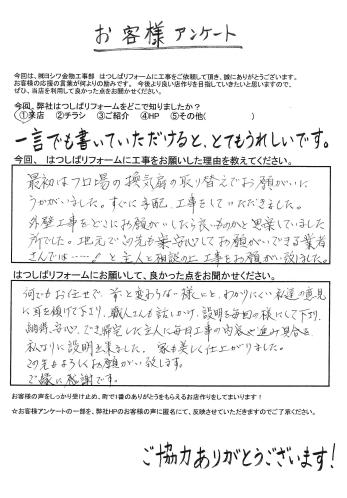 お客様アンケート
今回は、㈱ヨシワ金物工事部 はつしばリフォームに工事をご依頼して頂き、誠にありがとうございます。
お客様の応援の言葉が何よりの励みです。 今後より良い店作りを目指していきたいと思いますので、
ぜひ、当店を利用して良かった点をお聞かせください。
今回、弊社はつしばリフォームをどこで知りましたか?
①来店 ②チラシ ③ご紹介 ④HP ⑤その他( )
一言でも書いていただけると、とてもうれしいです。
今回、 はつしばリフォームに工事をお願いした理由を教えてください。
最初はフロ場の換気扇の取り替えでお願いに
うかがいました。すぐに手配、工事をしていただきました。
外壁工事をどこにお願いしたら良いものかと思案していました
所でした。地元でこの先も安心してお願いできる業者
さんでは……!と主人と相談の上工事をお願い致しました。
はつしばリフォームにお願いして、良かった点をお聞かせください。
何でもお任せで、前と変わらない様にと、わかりにくい私達の意見
に耳を傾けて下り、職人さんも話しかけ、説明を毎日の様にして下り、
納得、安心、でき帰宅した主人に毎日工事の内容、進み具合を
私なりに説明出来ました。家も美しく仕上がりました。
この先もよろしくお願い致します。
ご縁に感謝です。
お客様の声をしっかり受け止め、町で1番のありがとうをもらえるお店作りをしてまいります!
☆お客様アンケートの一部を、弊社HPのお客様の声に匿名にて、反映させていただきますのでご了承ください。
ご協力ありがとうございます!